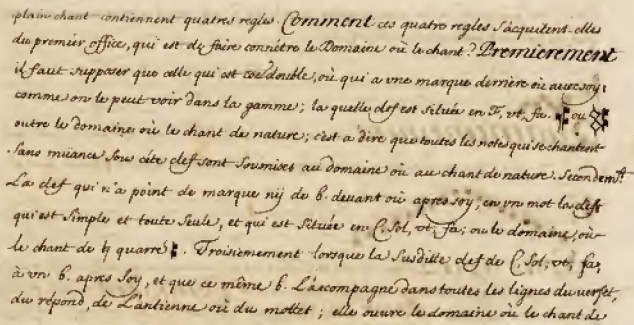 plain chant contiennent quatres regles. Comment ces quatre regles s'acquitent-elles
du premier office, qui est de faire connétre le Domaine où le chant? Premierement
il faut supposer que celle qui est double, où qui a vne marque derrière où avec soy,
comme on le peut voir dans la gamme; la quelle clef est située en F, vt, fa. ou
outre le domaine où le chant de nature; c'est a dire que toutes les notes qui se chantent
sans müance sous céte clef sont soumises au domaine où au chant de nature. Secondemt.
La clef qui n'a point de marque nij de b. devant où apres soy, en vn mot la clef
qui est simple et toute seule, et qui est située en C, Sol, vt, fa; ou le domaine, où
le chant de ♮ quarré. Troisiemement lorsque la susditte clef de C, Sol, vt, fa,
à vn b. apres soy, et que ce même b. L'accompagne dans toutes les lignes du verset,
du répond, de L'antienne où du mottet; elle ouvre le domaine où le chant de